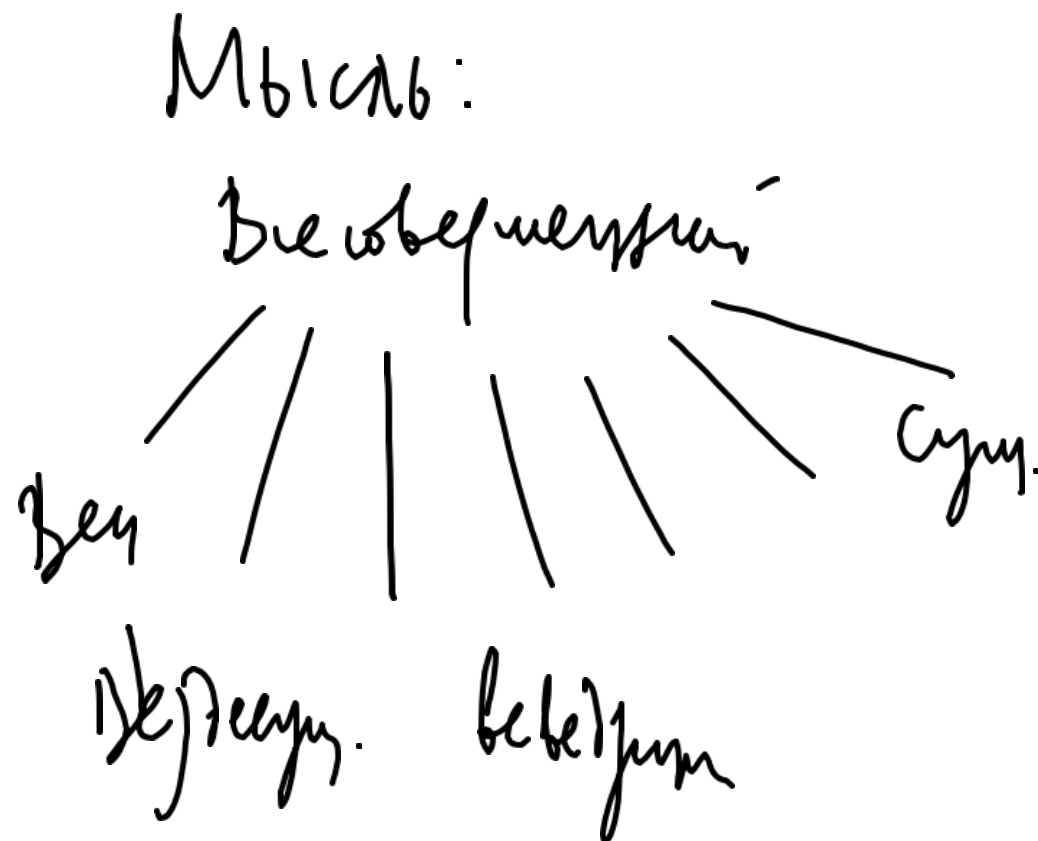 Мысль:
Всесовершенный
Веч Сущ.
Вездесущ. Всеведущ